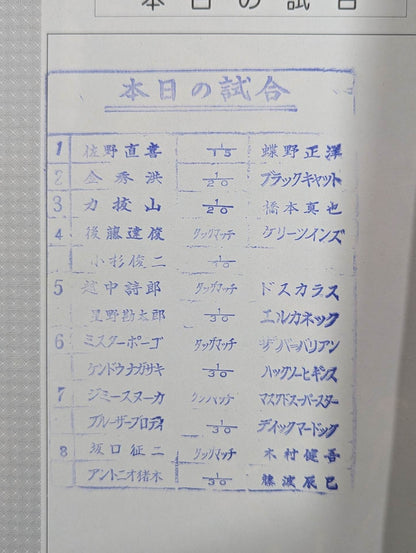 本日の試合
本日の試合
1 佐野直喜 1/15 蝶野正洋
2 金秀洪 1/20 ブラックキャット
3 力抜山 1/20 橋本真也
4 後藤達俊 タッグマッチ ケリーツインズ
小杉俊二
5 越中詩郎 タッグマッチ ドスカラス
星野勘太郎 1/30 エルカネック
6 ミスターポーゴ タッグマッチ ザバーバリアン
ケンドウナガサキ 1/30 ハクソーヒギンス
7 ジミースヌーカ タッグマッチ マスクドスーパースター
ブルーザーブロディ 1/30 ディックマードック
8 坂口征二 タッグマッチ 木村健吾
アントニオ猪木 1/30 藤波辰巳